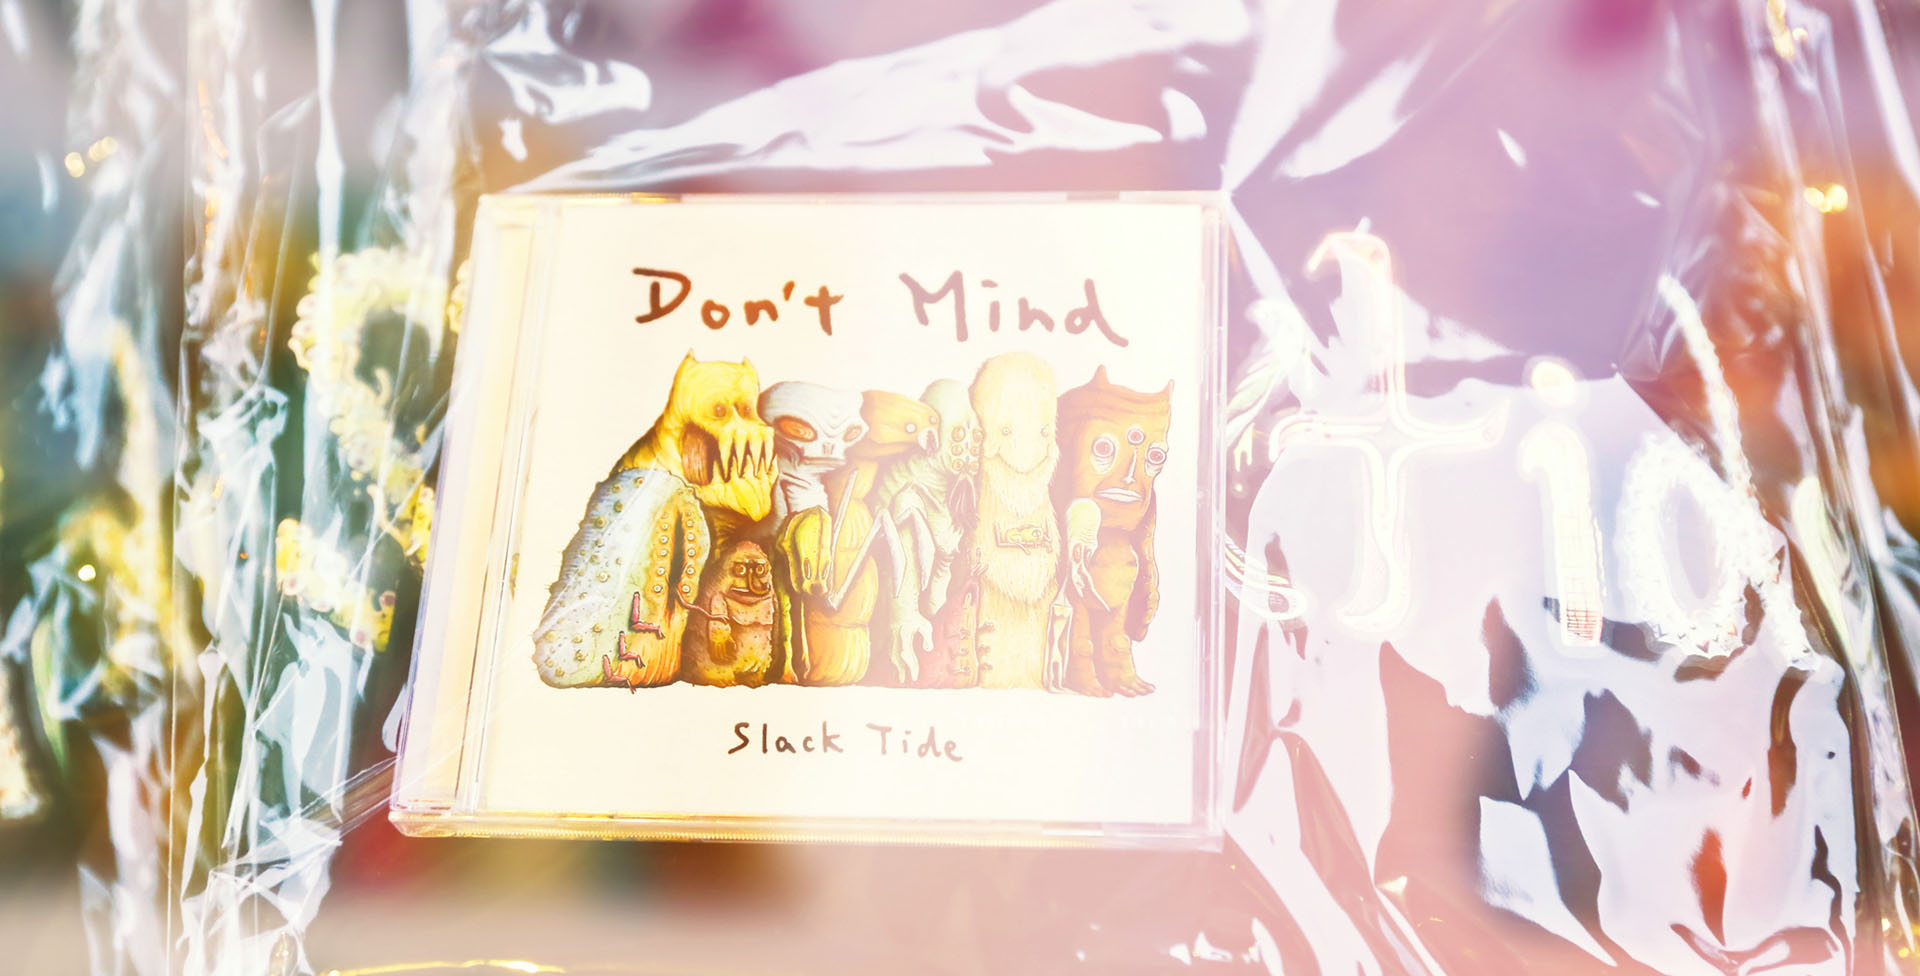 Don't Mind
Slack Tide
tio